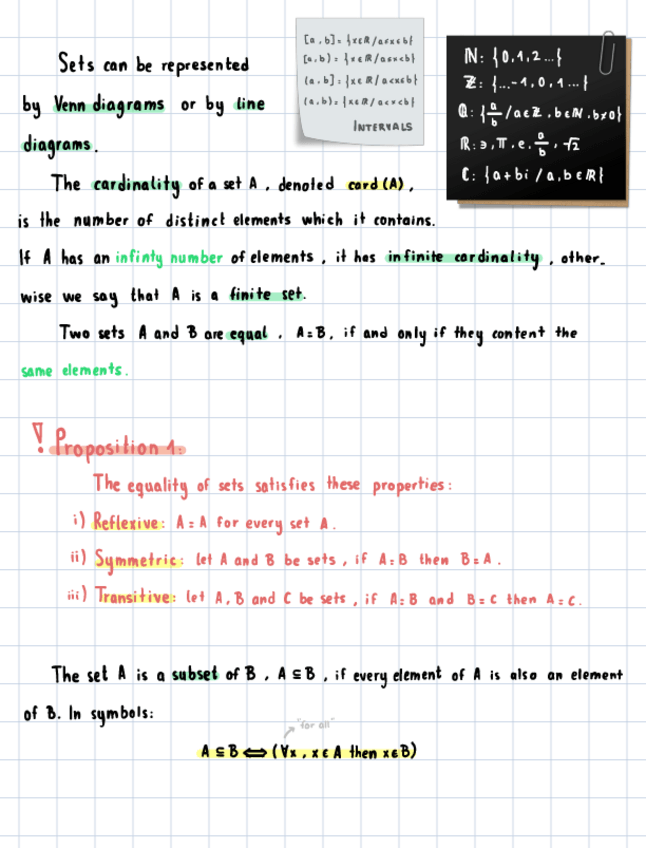 Sets can be represented
by Venn diagrams or by line
diagrams.
[a,b]={x∈R/a≤x≤b}
[a,b)={x∈R/a≤x<b}
(a,b]={x∈R/a<x≤b}
(a,b)={x∈R/a<x<b}
INTERVALS
N: {0,1,2...}
Z: {...-1,0,1...}
Q: {a/b /a∈Z, b∈N, b≠0}
R: π, e, a/b, √2
C: {a+bi / a,b∈R}
The cardinality of a set A, denoted card(A),
is the number of distinct elements which it contains.
If A has an infinty number of elements, it has infinite cardinality, other-
wise we say that A is a finite set.
Two sets A and B are equal, A=B, if and only if they content the
same elements.
! Proposition 1.
The equality of sets satisfies these properties:
i) Reflexive: A=A for every set A.
ii) Symmetric: let A and B be sets, if A=B then B=A.
iii) Transitive: let A, B and C be sets, if A=B and B=C then A=C.
The set A is a subset of B, A⊆B, if every element of A is also an element
of B. In symbols:
"for all"
A⊆B⟺(∀x, x∈A then x∈B)